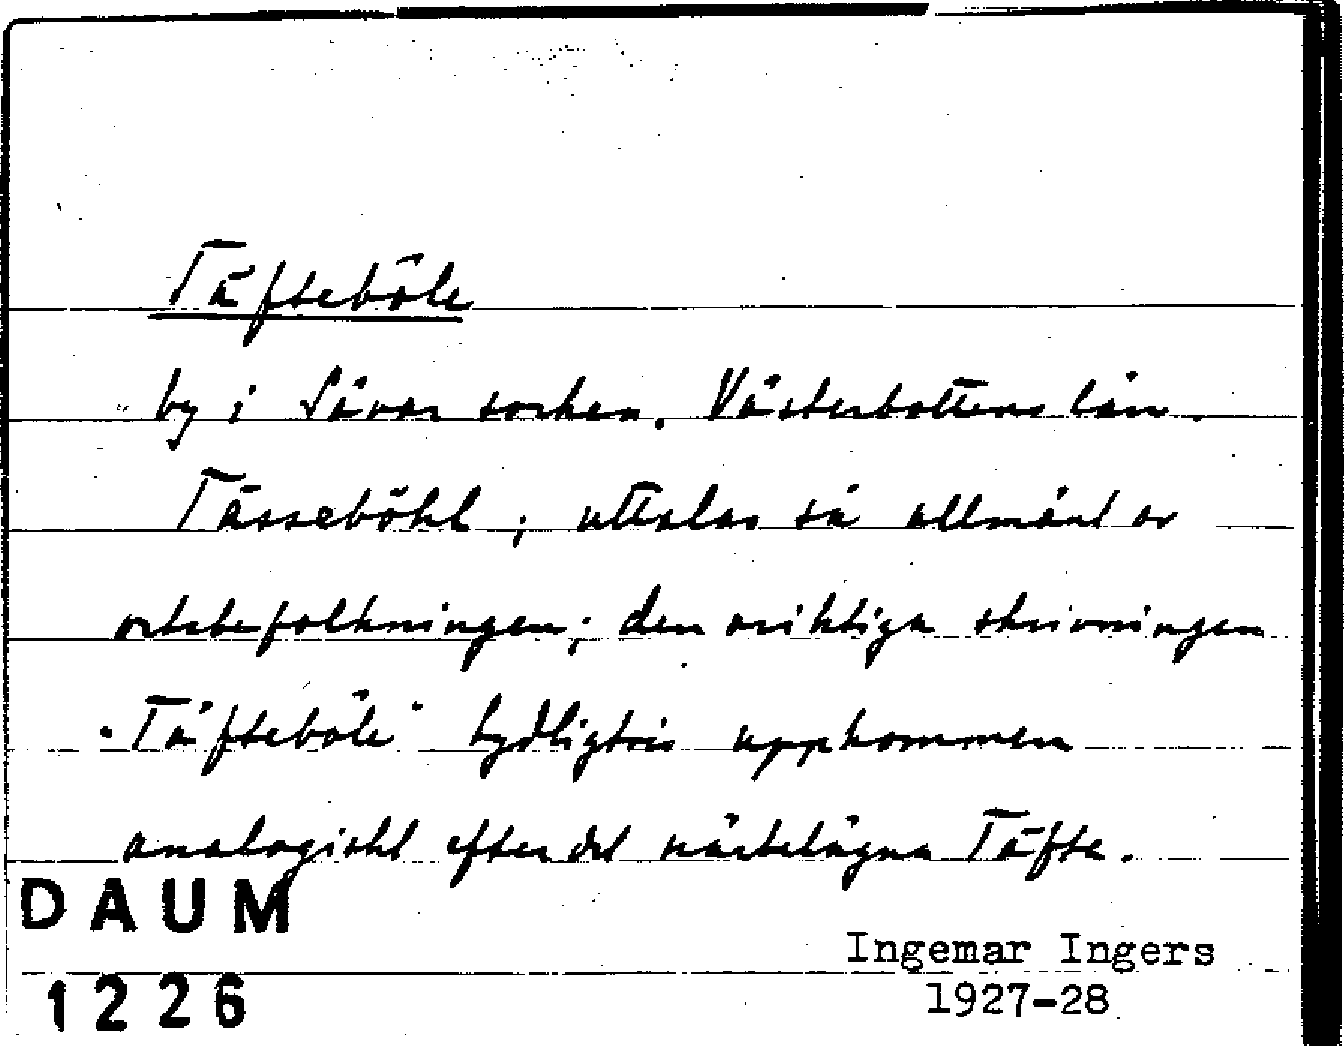 Täfteböle
by i Sävar socken. Västerbottens län.
Tässeböhl ; uttalas så allmänt av
ortsbefolkningen; den oriktiga skrivningen
"Täfteböle" tydligtvis uppkommen
analogiskt efter det närbelägna Täfte.
DAUM
1226
Ingemar Ingers
1927-28